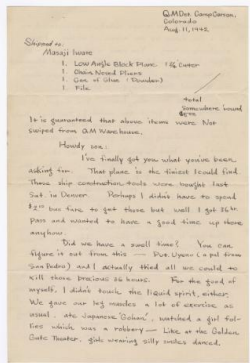 QM Det. Camp Carson,
Colorado
Aug. 11, 1942
Shipped to
Masaji Iwate
1. Low Angle Block Plane 1 5/8 Cutter
1. Chain Nosed Pliers
1. Can of Glue (Powder)
1. File
total
somewhere 'round
It is guaranteed that above items were Not
Swiped from QM Warehouse.
Howdy
I've finally got you what you've been
asking for. That place is the finest I could find.
Those ship construction tools were bought last
Sat. in Denver. Perhaps I didn't have to spend
bus fare to get those but, well I got 36 hr.
Pass and wanted to have a good time up there
anyhow.
Did we have a swell time? You can
figure it out from this — Pvt. (a pal from
San Pedro) and I actually tried all we could to
kill those precious 36 hours. For the good of
myself, I didn't touch the liquid spirit, either.
We gave our leg muscles a lot of exercise, as
usual, ate Japanese "Gohan," watched a girl
which was a robbery — Like at the Golden
Gate Theater, girls wearing silly smiles danced.